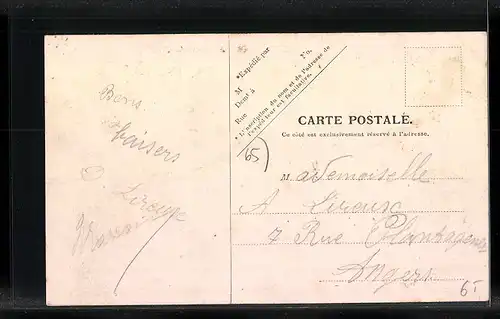 Bons
baisers
*Expédié par
M
Demt à
Rue
No.
* L'inscription du nom et de l'adresse de
l'expéditeur est facultative.
65
CARTE POSTALE.
Ce côté est exclusivement réservé à l'adresse.
Mademoiselle
A Liroux
7 Rue Plantagenet
Angers
6